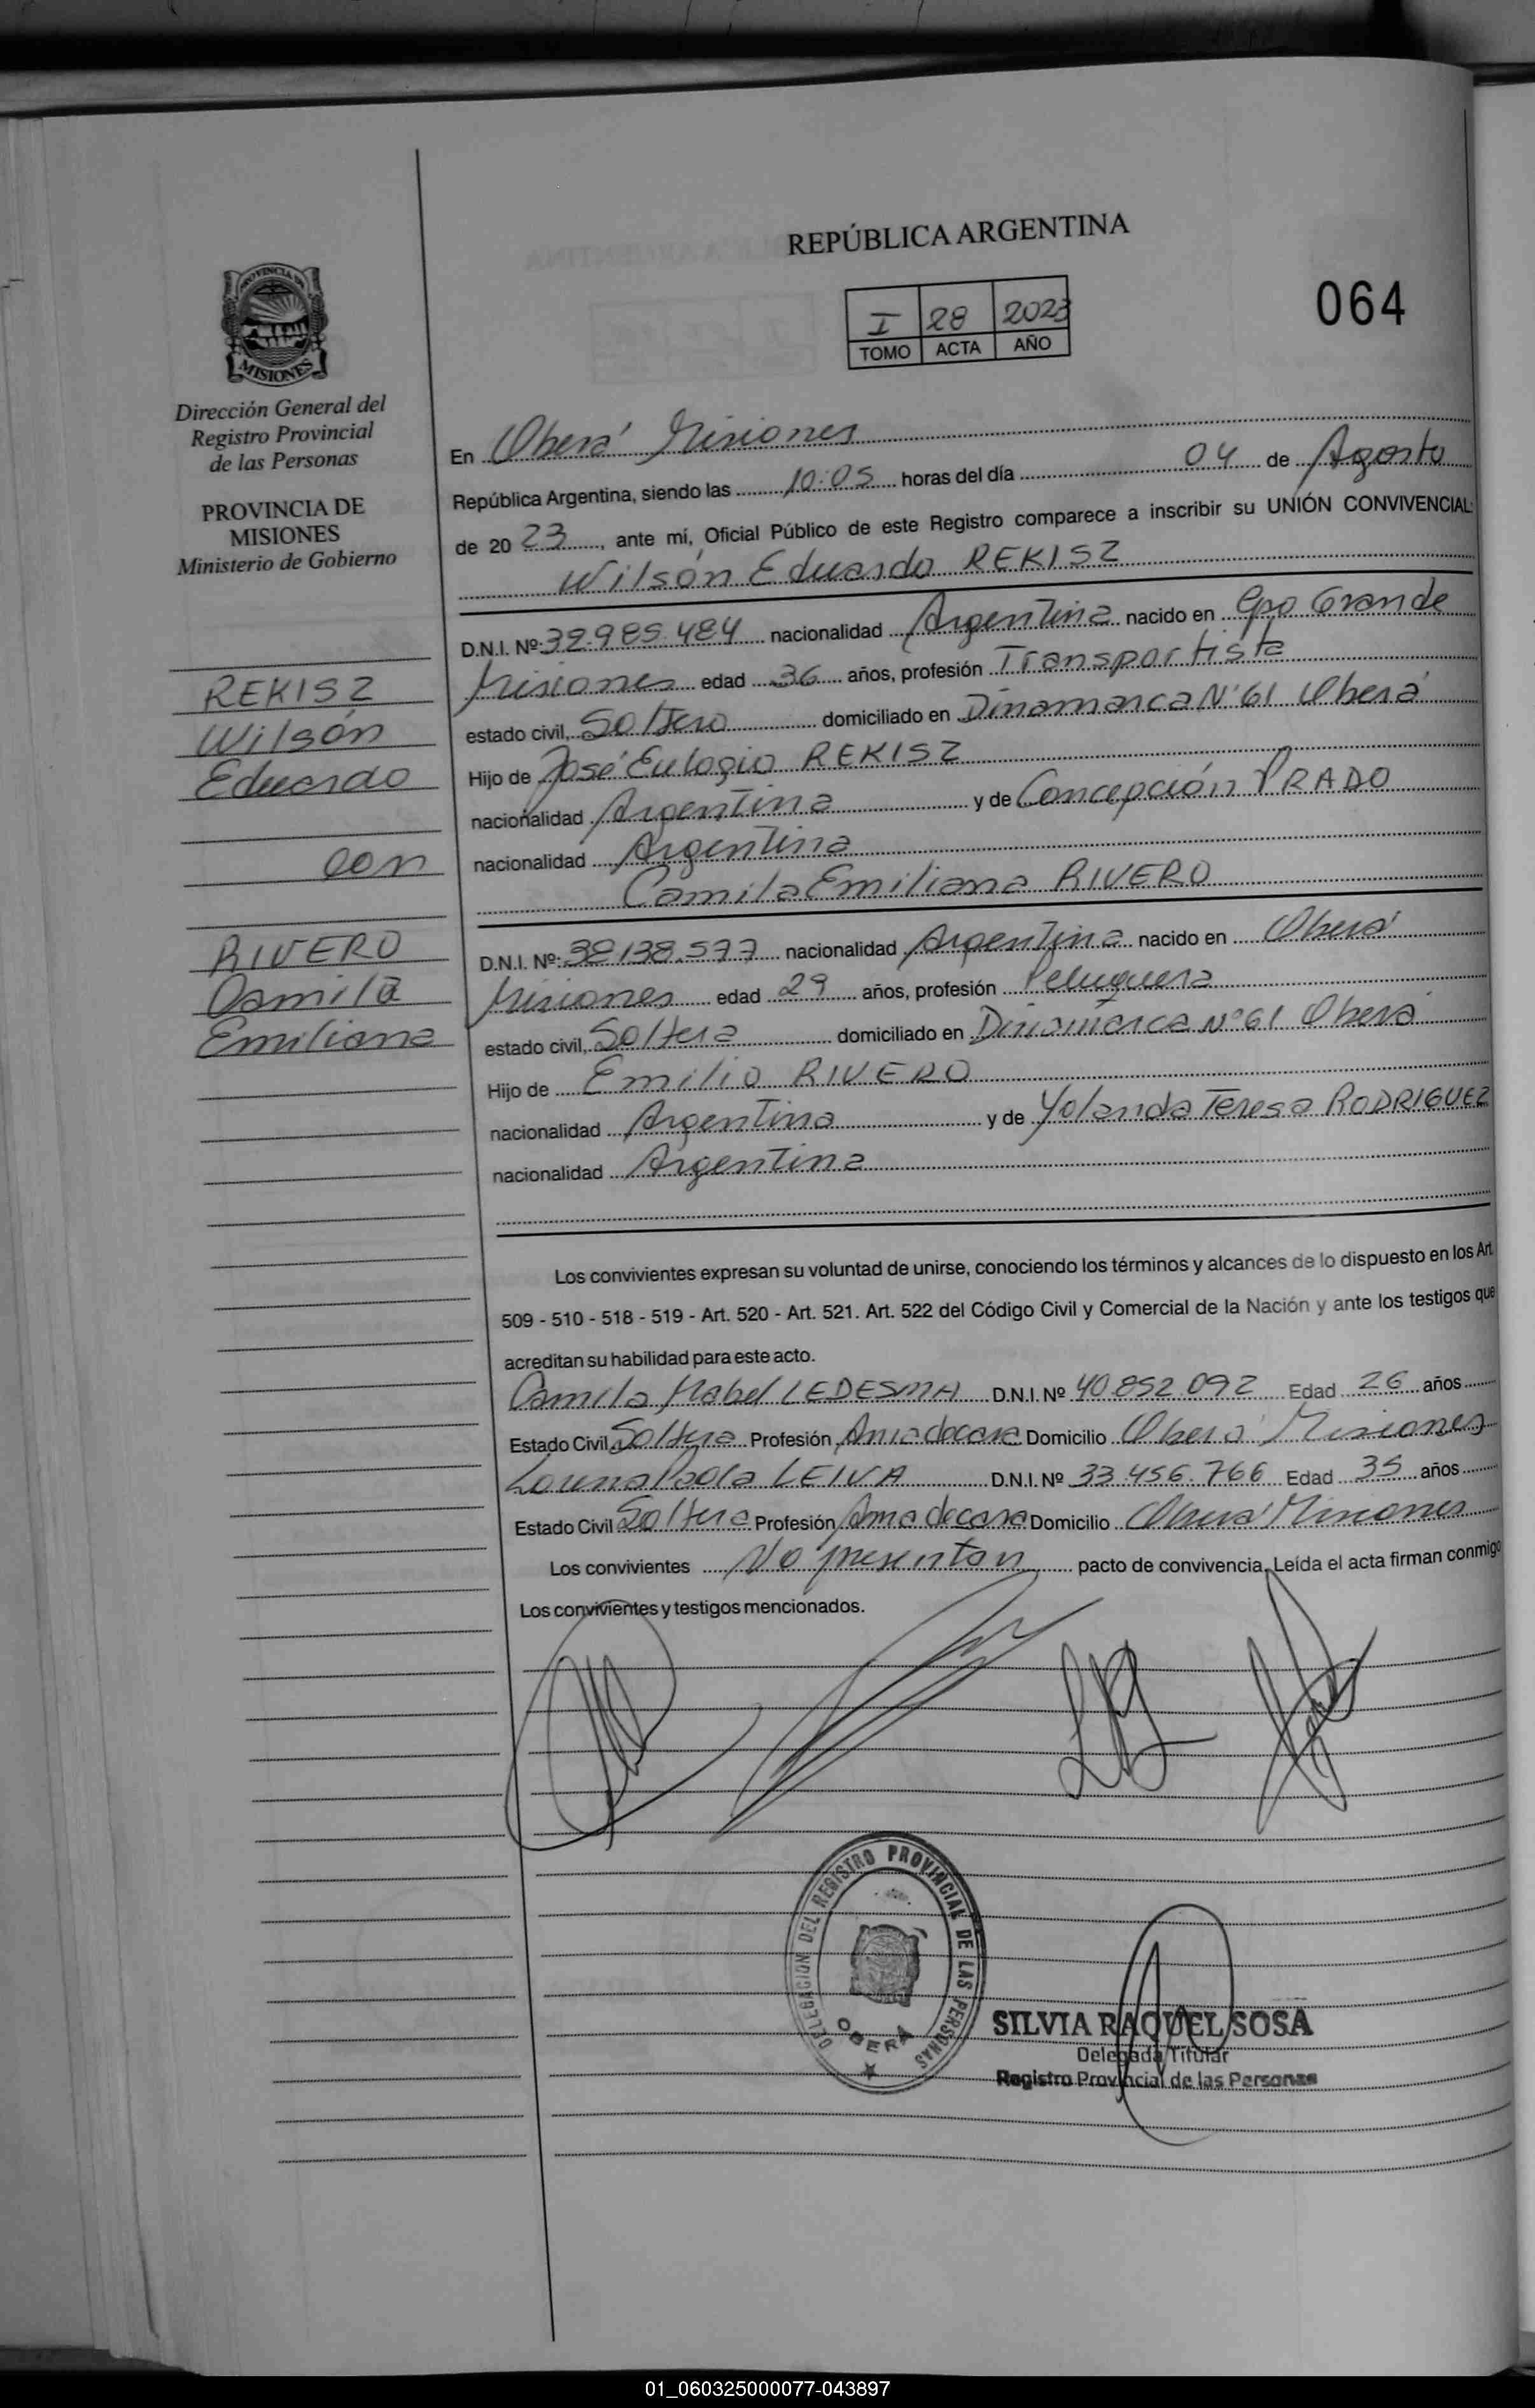 REPÚBLICA ARGENTINA
064
I 28 2023
TOMO ACTA AÑO
PROVINCIA DE
MISIONES
Dirección General del
Registro Provincial
de las Personas
PROVINCIA DE
MISIONES
Ministerio de Gobierno
REKISZ
Wilsón
Eduardo
con
RIVERO
Camila
Emiliana
En Oberá Misiones
República Argentina, siendo las 10:05 horas del día 04 de Agosto
de 20 23, ante mí, Oficial Público de este Registro comparece a inscribir su UNIÓN CONVIVENCIAL:
Wilsón Eduardo REKISZ
D.N.I. Nº: 32.985.484 nacionalidad Argentina nacido en Cpo Grande
Misiones edad 36 años, profesión Transportista
estado civil, Soltero domiciliado en Dinamarca Nº 61 Oberá
Hijo de José Eulogio REKISZ
nacionalidad Argentina y de Concepción PRADO
nacionalidad Argentina
Camila Emiliana RIVERO
D.N.I. Nº: 38.138.577 nacionalidad Argentina nacido en Oberá
Misiones edad 29 años, profesión Peluquera
estado civil, Soltera domiciliado en Dinamarca Nº 61 Oberá
Hijo de Emilio RIVERO
nacionalidad Argentina y de Yolanda Teresa RODRIGUEZ
nacionalidad Argentina
Los convivientes expresan su voluntad de unirse, conociendo los términos y alcances de lo dispuesto en los Art.
509 - 510 - 518 - 519 - Art. 520 - Art. 521. Art. 522 del Código Civil y Comercial de la Nación y ante los testigos que
acreditan su habilidad para este acto.
Camila Mabel LEDESMA D.N.I. Nº 40.852.092 Edad 26 años
Estado Civil Soltera Profesión Ama de casa Domicilio Oberá Misiones
Lorena Paola LEIVA D.N.I. Nº 33.456.766 Edad 35 años
Estado Civil Soltera Profesión Ama de casa Domicilio Oberá Misiones
Los convivientes No presentan pacto de convivencia. Leída el acta firman conmigo
Los convivientes y testigos mencionados.
DELEGACION DEL REGISTRO PROVINCIAL DE LAS PERSONAS
OBERA
SILVIA RAQUEL SOSA
Delegada Titular
Registro Provincial de las Personas
01_060325000077-043897